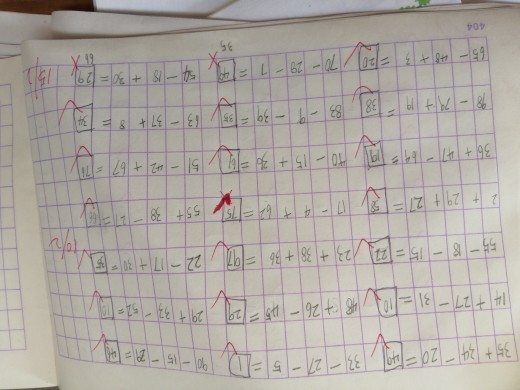 35 + 24 - 20 = 49 33 - 27 - 5 = 1 90 - 15 - 29 = 46
14 + 27 - 31 = 10 48 + 26 - 45 = 29 29 + 33 - 52 = 10
55 - 18 - 15 = 22 23 + 38 + 36 = 97 22 - 17 + 30 = 35
2 + 29 + 27 = 58 17 - 4 + 62 = 75 55 + 38 - 27 = 66
36 + 47 - 64 = 19 40 - 15 + 36 = 61 51 - 42 + 67 = 76
98 - 79 + 19 = 38 83 - 9 - 39 = 35 63 - 37 + 8 = 34
65 - 48 + 3 = 20 70 - 29 - 7 = 49 54 - 18 + 30 = 29
404 35 66